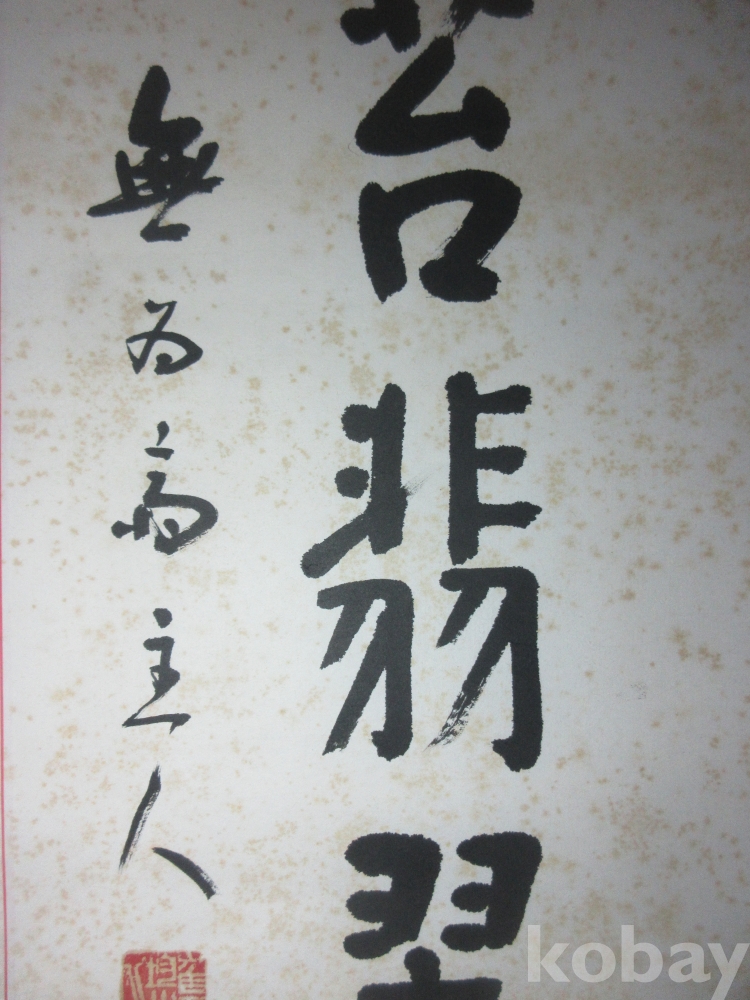 苔翡翠
無為齋主人
kobay